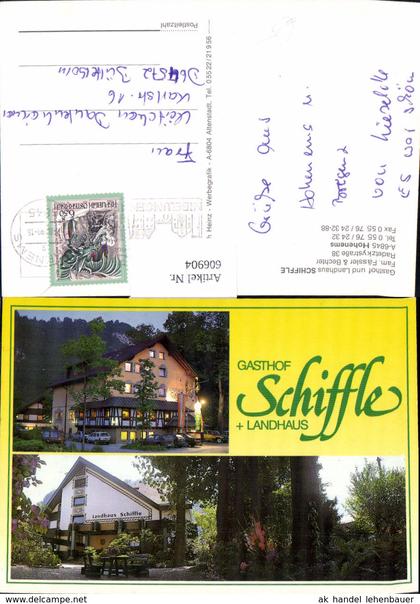 Postleitzahl
D 64572 Büttelborn
Karlstr. 16
Frau
h Heinz - Werbegrafik - A-6804 Altenstadt, Tel. 0 55 22 / 21 9 56
Artikel Nr.
606904
REPUBLIK ÖSTERREICH
Grüße aus
Hohenems u.
Bregenz
von Lieselotte
Es war schön
Gasthof und Landhaus SCHIFFLE
Fam. Fässler & Bechter
Radetzkystraße 38
A-6845 Hohenems
Tel. 0 55 76 / 24 32
Fax 0 55 76 / 24 32-88
GASTHOF
Schiffle
+ LANDHAUS
Landhaus Schiffle
www.delcampe.net
ak handel lehenbauer